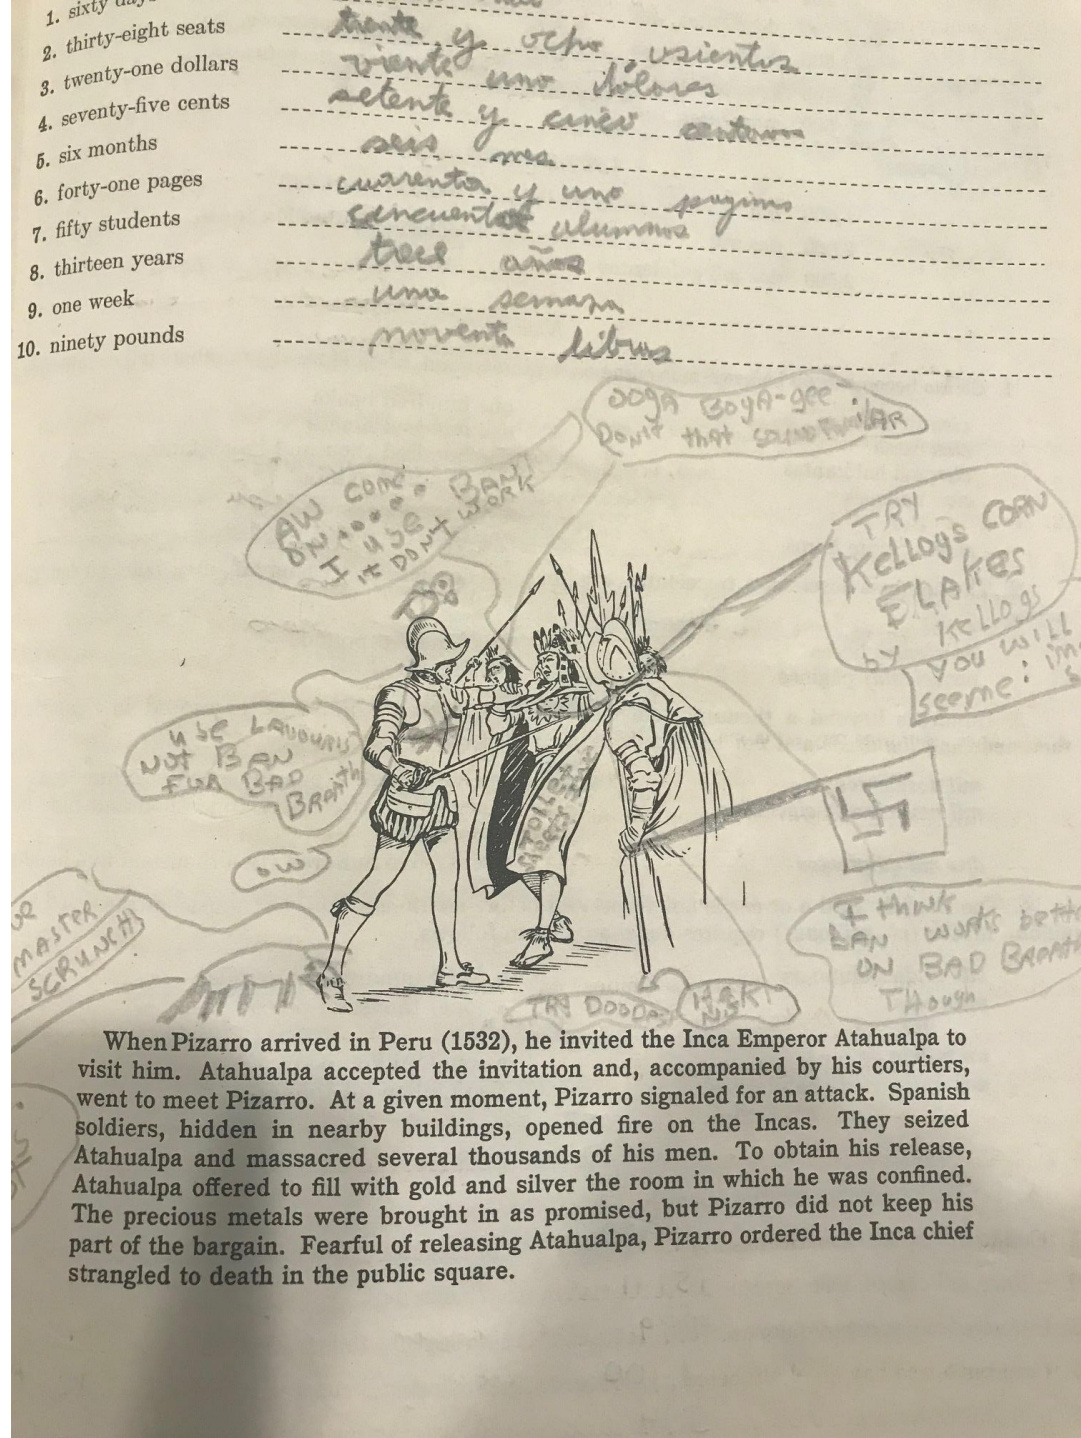 1. sixty days
2. thirty-eight seats trente y ocho usientos
3. twenty-one dollars viente uno dólares
4. seventy-five cents setente y cinco centavos
5. six months seis mes
6. forty-one pages cuarenta y uno pagims
7. fifty students cincuenta alumnos
8. thirteen years trece años
9. one week una semana
10. ninety pounds noventa libras
OOGA BOYA-gee
DON'T that SOUND FAMILAR
AW COME
ON..... BAN!
I USE
it DON't WORK
TRY
Kellogs CORN
FLAKES
by Kellogs
you WILL
seeme! im
U SE LAVOURIS
NOT BAN
FUR BAD
BRAATH
OW
MASTER
SCRUNCH
I think
BAN works bette
ON BAD BRAATH
Though
TRY
When Pizarro arrived in Peru (1532), he invited the Inca Emperor Atahualpa to
visit him. Atahualpa accepted the invitation and, accompanied by his courtiers,
went to meet Pizarro. At a given moment, Pizarro signaled for an attack. Spanish
soldiers, hidden in nearby buildings, opened fire on the Incas. They seized
Atahualpa and massacred several thousands of his men. To obtain his release,
Atahualpa offered to fill with gold and silver the room in which he was confined.
The precious metals were brought in as promised, but Pizarro did not keep his
part of the bargain. Fearful of releasing Atahualpa, Pizarro ordered the Inca chief
strangled to death in the public square.